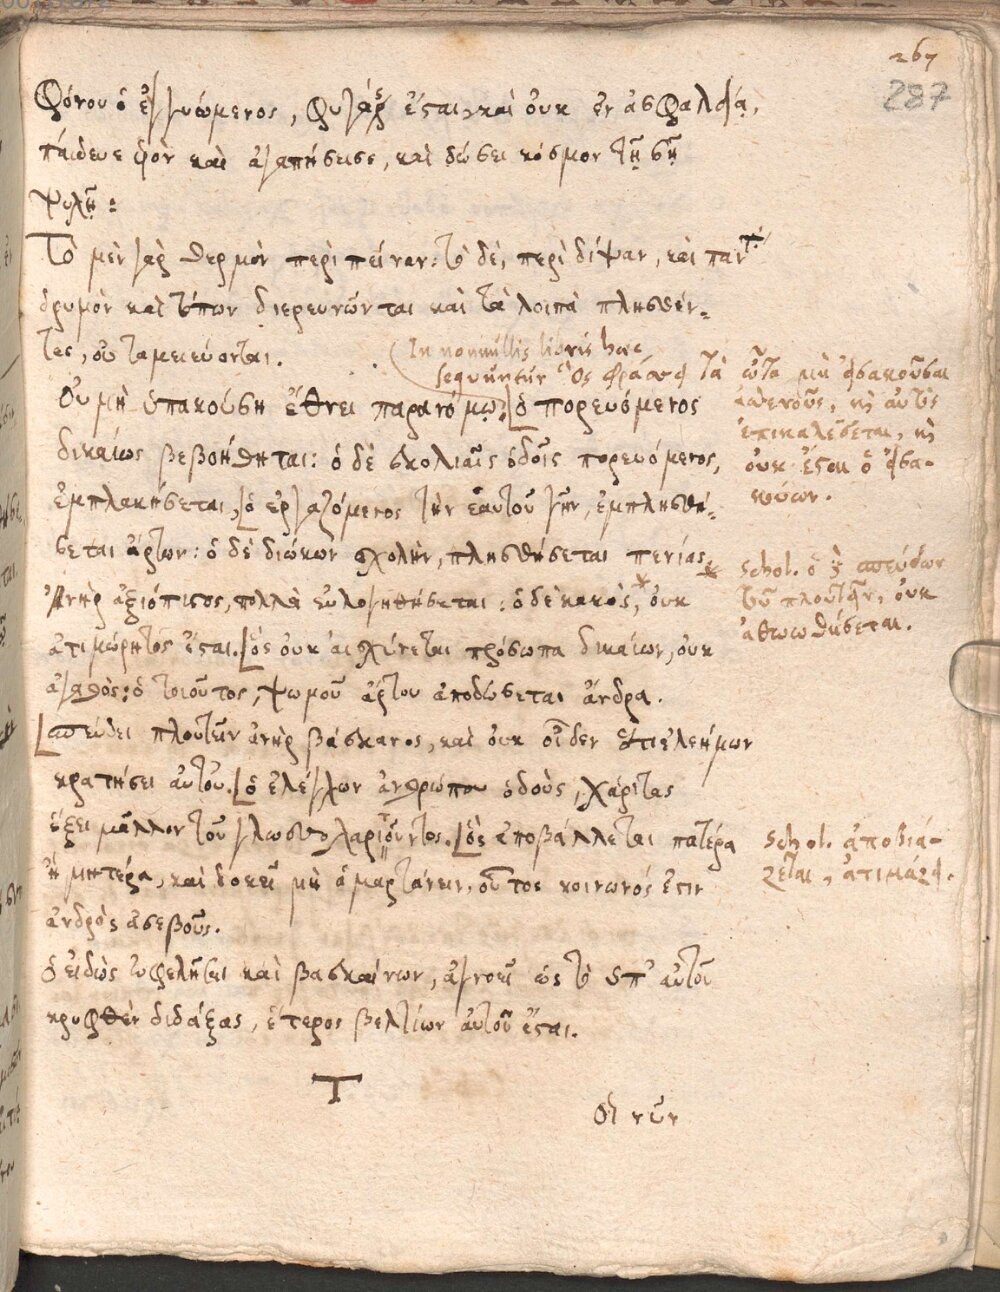 267
287
Φόνου ὁ ἐγγυώμενος, φυγὰς ἔσται, καὶ οὐκ ἐν ἀσφαλείᾳ.
παίδευε υἱὸν καὶ ἀγαπήσει σε, καὶ δώσει κόσμον τῇ σῇ
ψυχῇ:
Τὸ μὲν γὰρ θερμὸν περὶ πείναν: τὸ δὲ, περὶ δίψαν, καὶ παν
δρυμὸν καὶ τόπον διερευνῶνται καὶ τὰ λοιπὰ πλησθέν-
τες, οὐ ταμειεύονται.
(In nonnullis libris haec
sequuntur Ὃς φράσσει τὰ ὦτα μὴ εἰσακοῦσαι
ἀσθενοῦς, καὶ αὐτὸς
ἐπικαλέσεται, καὶ
οὐκ ἔσται ὁ εἰσα-
κούων.
Οὐ μὴ ὑπακούσῃ ἔθνει παρανόμῳ. ὁ πορευόμενος
δικαίως βεβοήθηται: ὁ δὲ σκολιαῖς ὁδοῖς πορευόμενος,
ἐμπλακήσεται, ὁ ἐργαζόμενος τὴν ἑαυτοῦ γῆν, ἐμπλησθή-
σεται ἄρτων: ὁ δὲ διώκων σχολὴν, πλησθήσεται πενίας.
Ἀνὴρ ἀξιόπιστος, πολλὰ εὐλογηθήσεται: ὁ δὲ κακὸς,* οὐκ
* schol. ὁ δὲ σπεύδων
τοῦ πλουτεῖν, οὐκ
ἀθωωθήσεται.
ἀτιμώρητος ἔσται. ὃς οὐκ αἰσχύνεται πρόσωπα δικαίων, οὐκ
ἀγαθὸς: ὁ τοιοῦτος, ψωμοῦ ἄρτου ἀποδώσεται ἄνδρα.
σπεύδει πλουτεῖν ἀνὴρ βάσκανος, καὶ οὐκ οἶδεν ὅτι ἐλεήμων
κρατήσει αὐτοῦ. ὁ ἐλέγχων ἀνθρώπου ὁδοὺς, χάριτας
ἕξει μᾶλλον τοῦ γλωσσοχαριτοῦντος. ὃς ἀποβάλλεται πατέρα
schol. ἀποβιά-
ζεται, ἀτιμάζει.
ἢ μητέρα, καὶ δοκεῖ μὴ ἁμαρτάνειν, οὗτος κοινωνός ἐστιν
ἀνδρὸς ἀσεβοῦς.
ὁ εἰδὼς ὠφελῆσαι καὶ βασκαίνων, ἀγνοεῖ ὡς τὸ ὑπ' αὐτοῦ
κρυφθὲν διδάξας, ἕτερος βελτίων αὐτοῦ ἔσται.
Τ
Οἱ νῦν